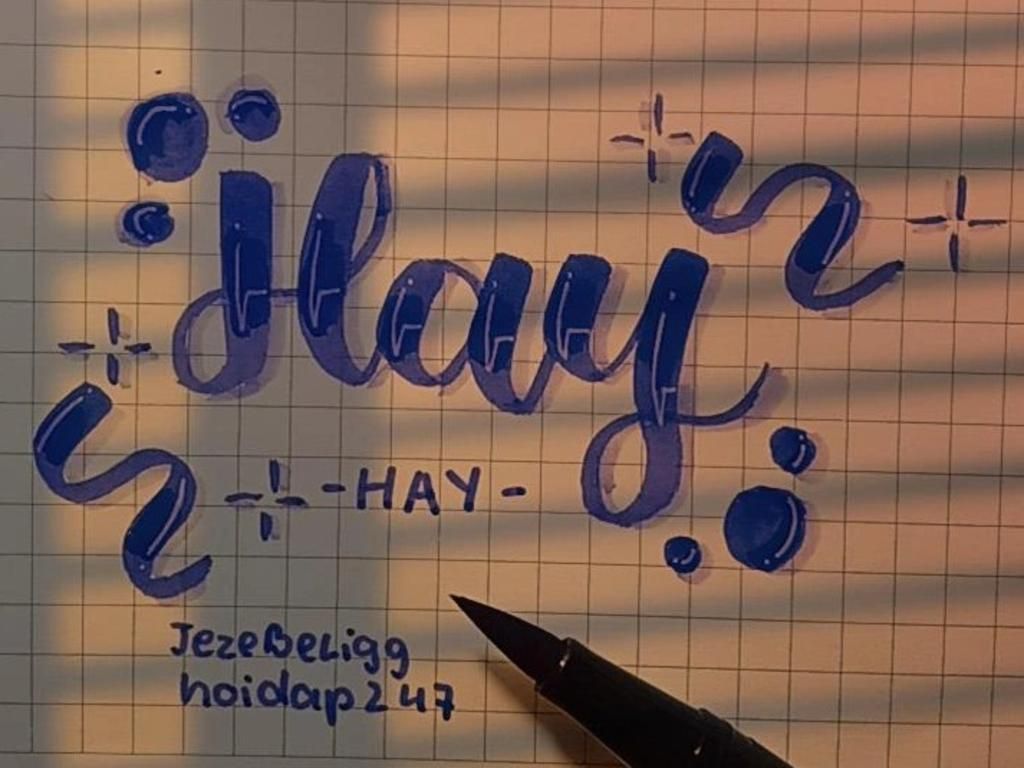 Hay
-HAY-
JezeBeLigg
hoidap247